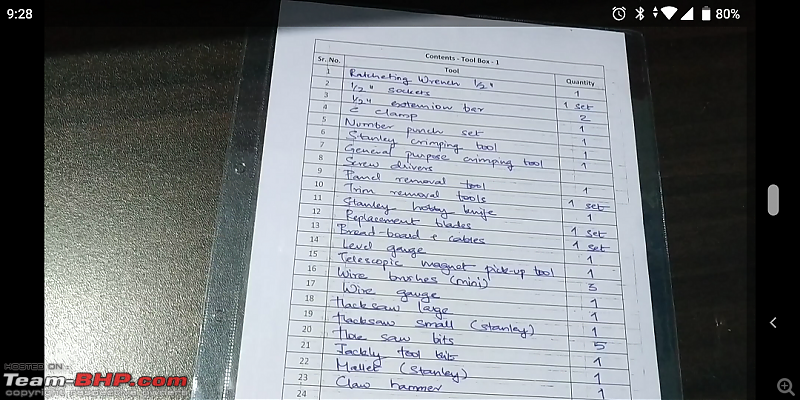 9:28
80%
Contents - Tool Box - 1
Sr. No. Tool Quantity
1 Ratcheting Wrench 1/2" 1
2 1/2" sockets 1 set
3 1/2" extension bar 2
4 C clamp 1
5 Number punch set 1
6 Stanley crimping tool 1
7 General purpose crimping tool 1
8 Screw drivers
9 Panel removal tool 1
10 Trim removal tools 1 set
11 Stanley hobby knife 1
12 Replacement blades 1 set
13 Bread-board & cables 1 set
14 Level gauge 1
15 Telescopic magnet pick-up tool 1
16 Wire brushes (mini) 3
17 Wire gauge 1
18 Hacksaw large 1
19 Hacksaw small (stanley) 1
20 Hole saw bits 5
21 Jackly tool kit 1
22 Mallet (Stanley) 1
23 Claw hammer 1
24
HOSTED ON :
Team-BHP.com
copyright respective owners